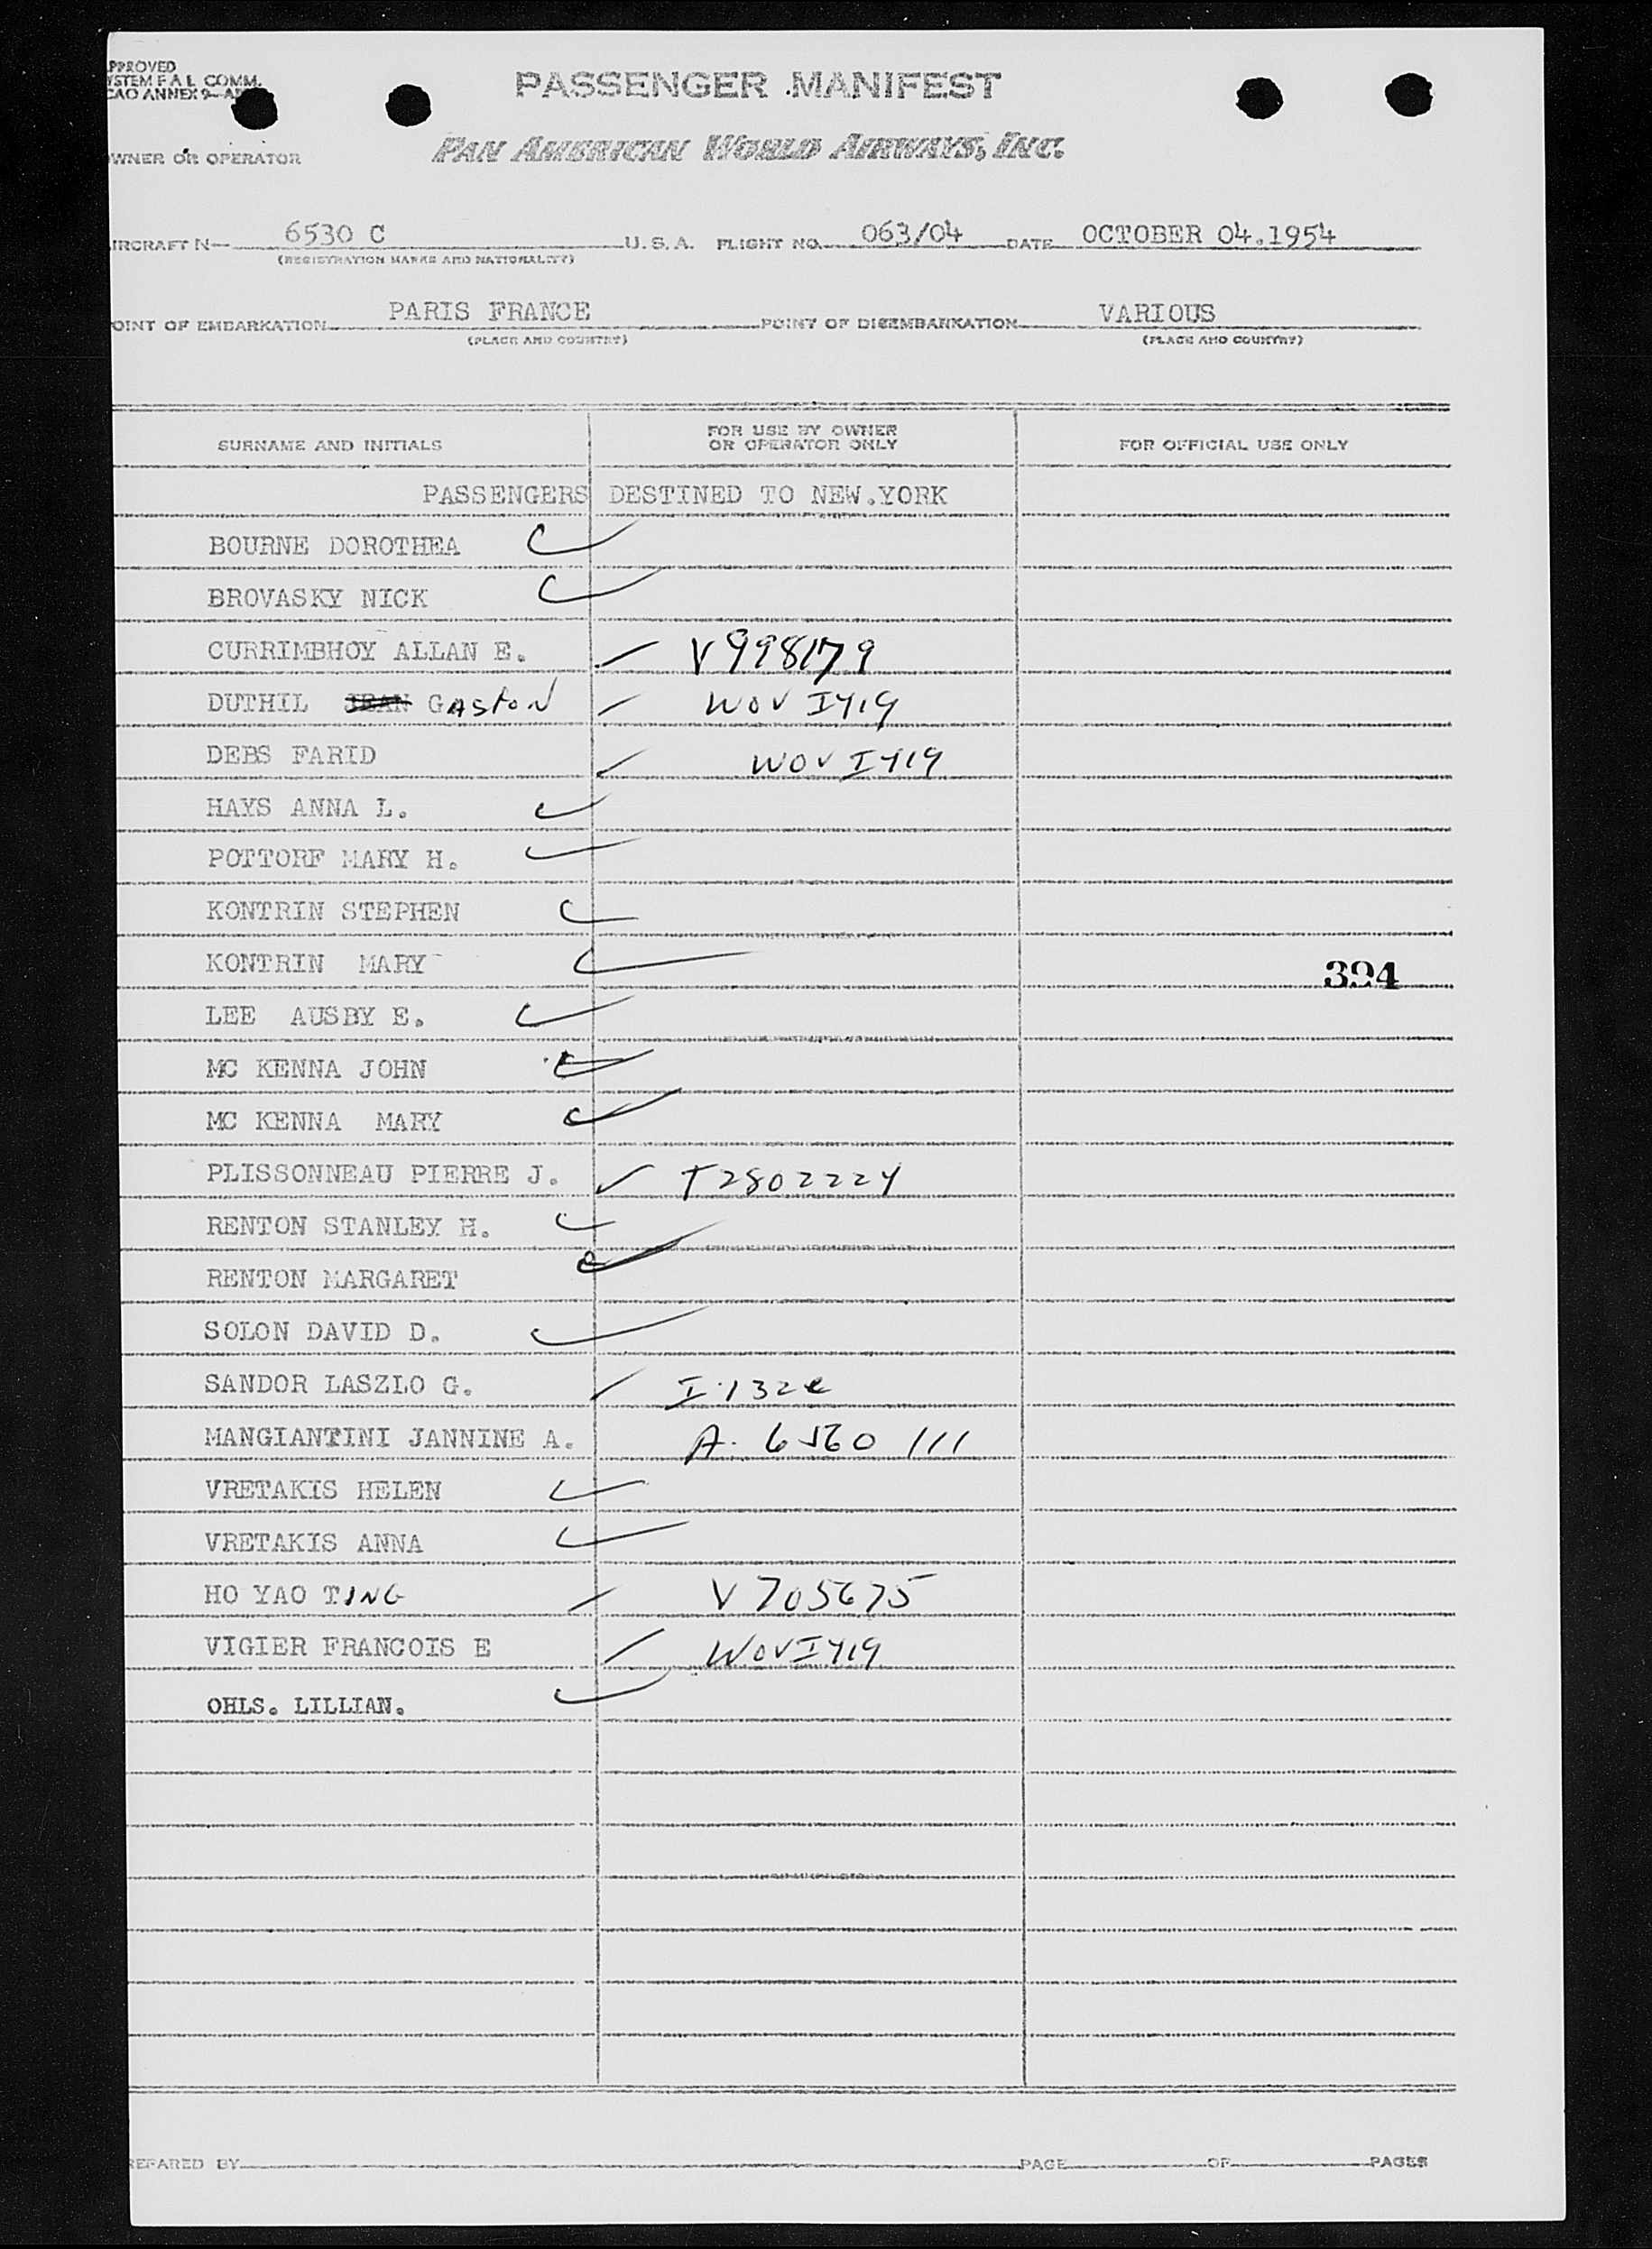 PPROVED
YSTEM F A L COMM.
CAO ANNEX 9—AP
PASSENGER MANIFEST
WNER OR OPERATOR
PAN AMERICAN WORLD AIRWAYS, INC.
IRCRAFT N— 6530 C U. S. A. FLIGHT NO. 063/04 DATE OCTOBER 04.1954
(REGISTRATION MARKS AND NATIONALITY)
OINT OF EMBARKATION PARIS FRANCE POINT OF DISEMBARKATION VARIOUS
(PLACE AND COUNTRY) (PLACE AND COUNTRY)
SURNAME AND INITIALS FOR USE BY OWNER OR OPERATOR ONLY FOR OFFICIAL USE ONLY
PASSENGERS DESTINED TO NEW.YORK
BOURNE DOROTHEA
BROVASKY NICK
CURRIMBHOY ALLAN E. V998179
DUTHIL JEAN GASTON WOV I419
DEBS FARID WOV I419
HAYS ANNA L.
POTTORF MARY H.
KONTRIN STEPHEN
KONTRIN MARY
394
LEE AUSBY E.
MC KENNA JOHN
MC KENNA MARY
PLISSONNEAU PIERRE J. T2802224
RENTON STANLEY H.
RENTON MARGARET
SOLON DAVID D.
SANDOR LASZLO G. I-132e
MANGIANTINI JANNINE A. A. 6560 111
VRETAKIS HELEN
VRETAKIS ANNA
HO YAO TING V705675
VIGIER FRANCOIS E WOV I419
OHLS. LILLIAN.
REPARED BY PAGE OF PAGES